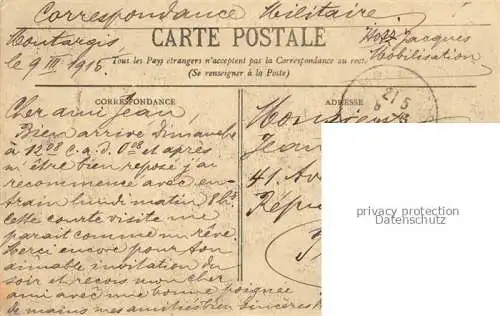 Correspondance Militaire
Montargis
le 9 III 1915
CARTE POSTALE
Jacques
Mobilisation
Tous les Pays étrangers n'acceptent pas la Correspondance au recto
(Se renseigner à la Poste)
CORRESPONDANCE
ADRESSE
21 5
Cher ami Jean,
Bien arrivé Dimanche
à 12 08 c.a.d. 0 08 et après
m'être bien reposé j'ai
recommencé avec en-
train lundi matin 8h
Cette courte visite me
parait comme un rêve
Merci encore pour ton
aimable invitation du
soir et reçois mon cher
ami avec une bonne poignée
de mains mes amitiés bien sincères
Monsieur
Jean
41 Av
Répu
privacy protection
Datenschutz